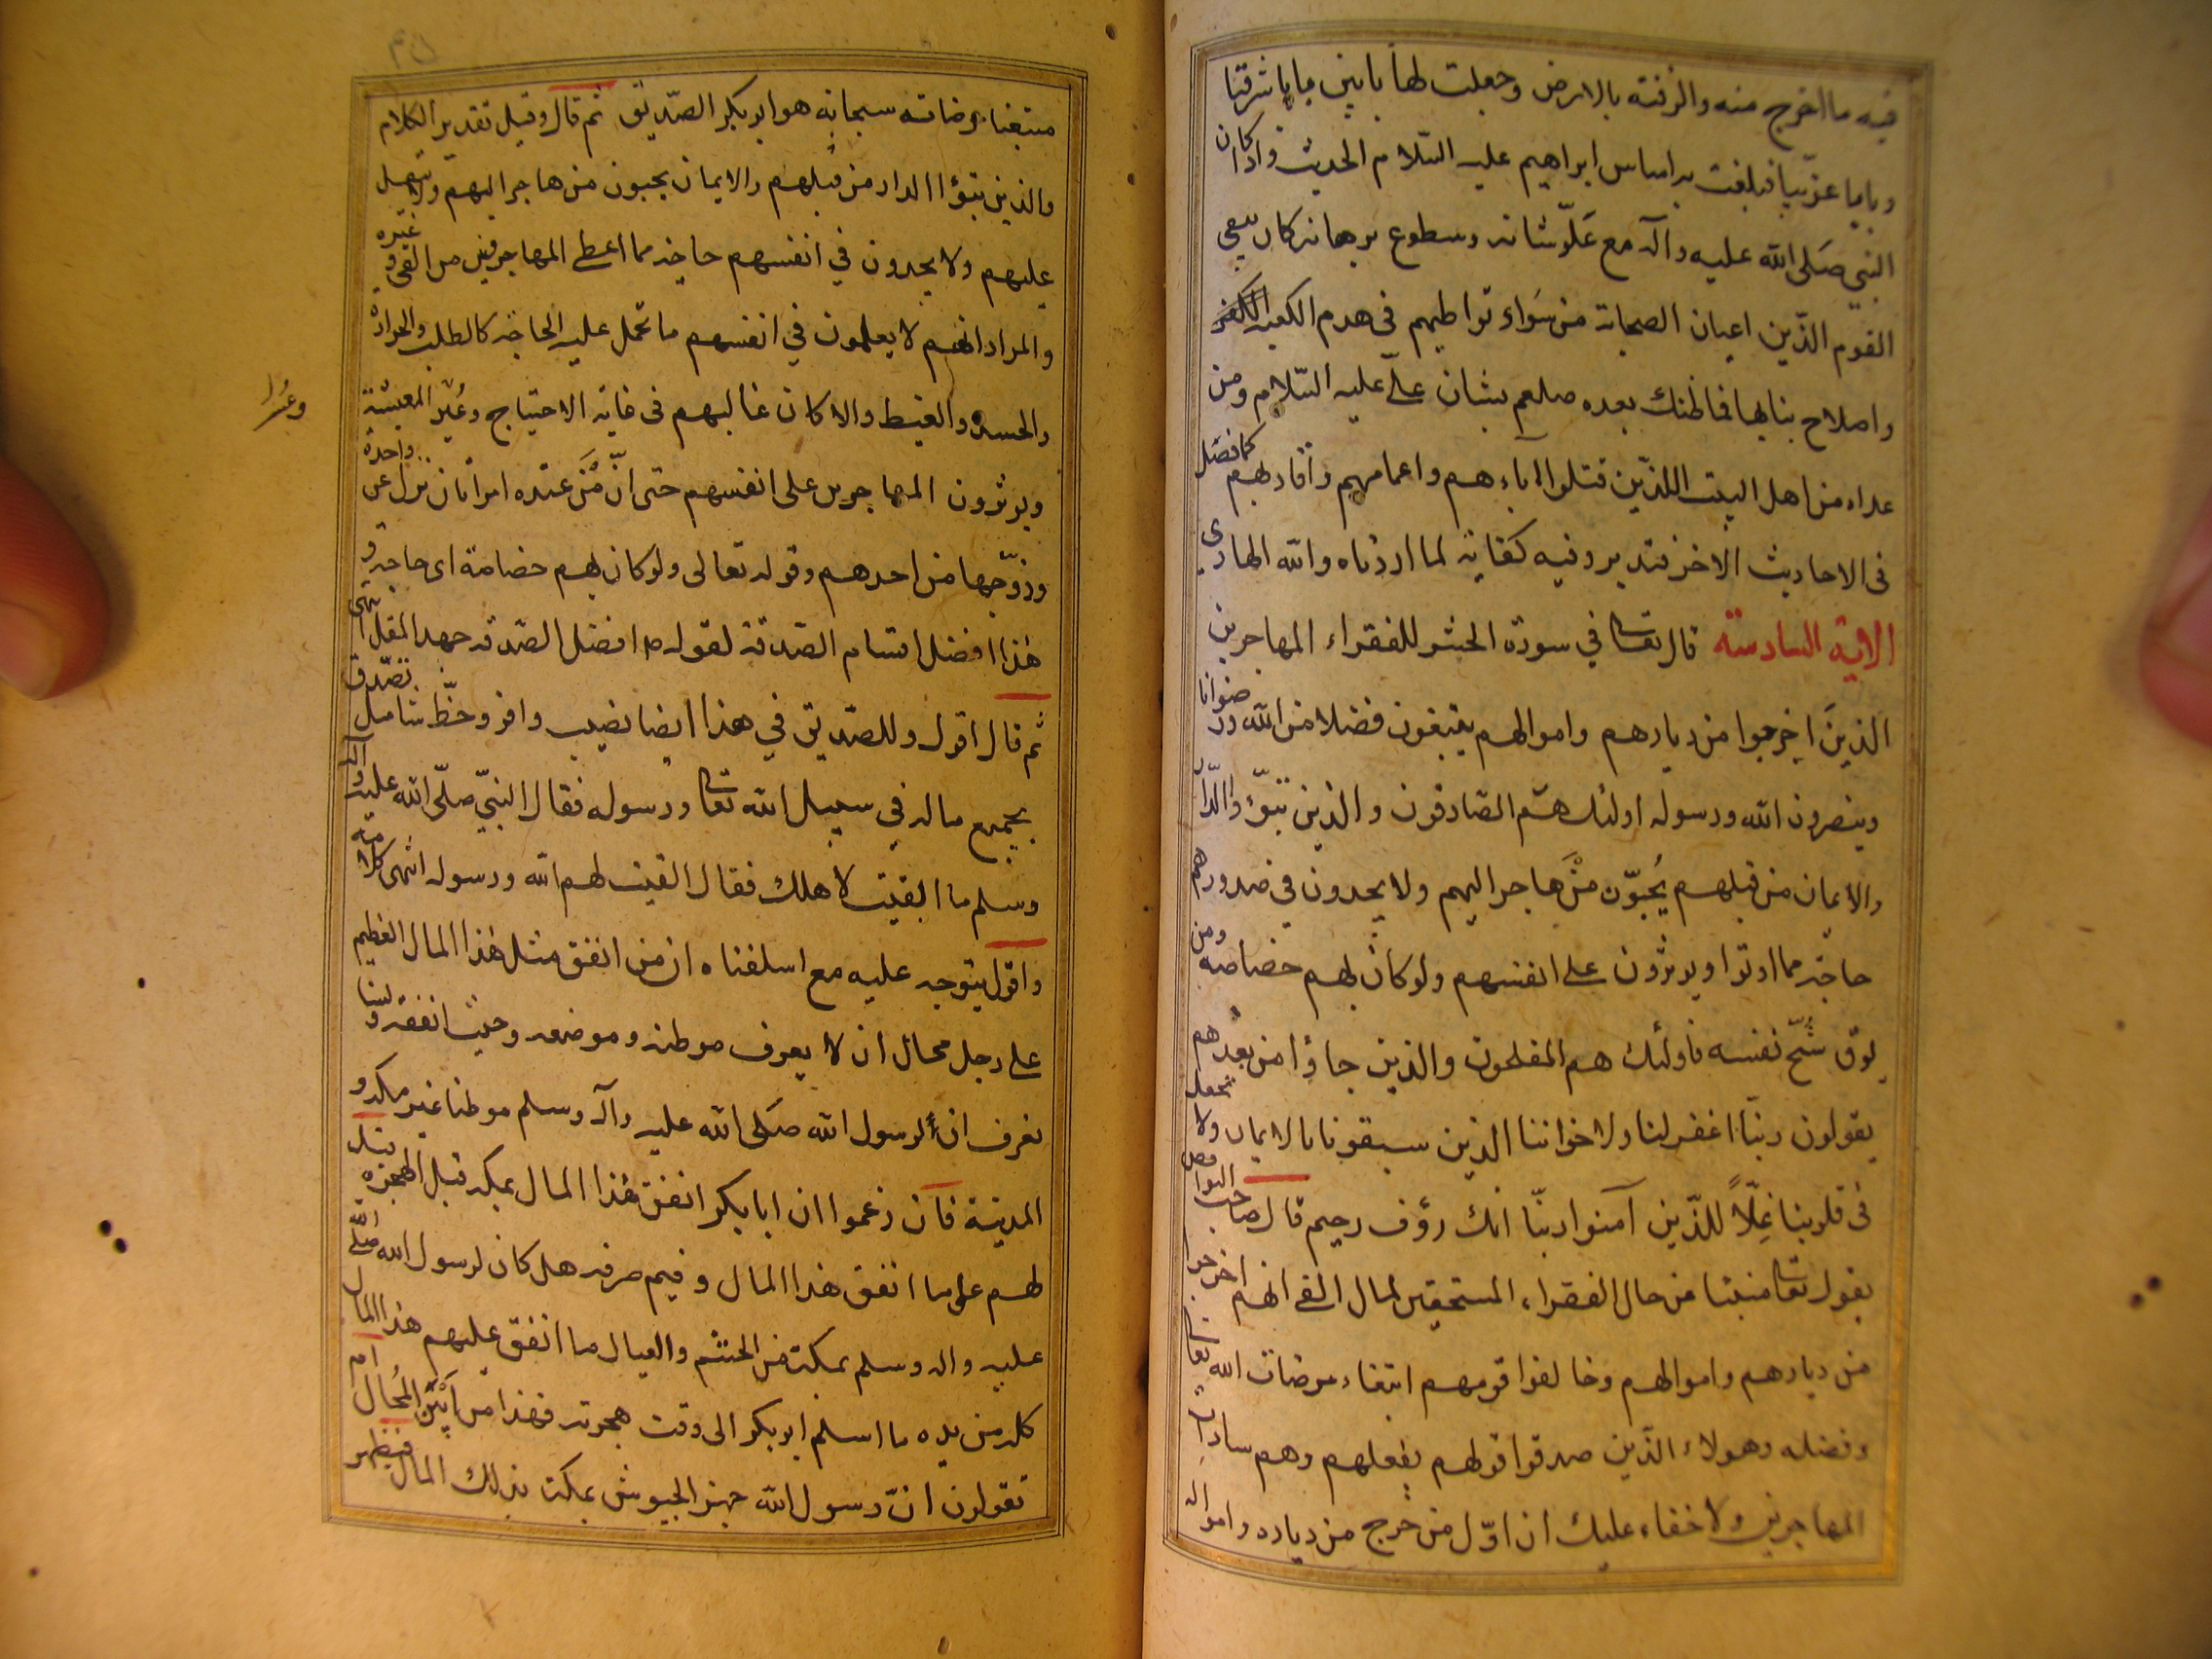 فيه ما اخرج منه والزقته بالارض وجعلت لها بابين بابا شرقيا
وبابا غربيا فبلغت به اساس ابراهيم عليه السّلام الحديث واذا كان
النبي صَلى الله عليه وآله مع عَلوّ شانه وسطوع برهانه كان يتقي
القوم الذّين اعيان الصحابة من سَواء تواطيهم فى هدم الكعبة
واصلاح بنايها فما ظنك بعده صلعم بشان عليّ عليه السّلام ومن
عداه من اهل البيت اللذّين قتلوا اباءهم واعمامهم واقاربهم كما فصّل
فى الاحاديث الاخر فتدبر وفيه كفاية لما اردناه والله الهادي
الاية السادسة قال تعالى في سورة الحشر للفقراء المهاجرين
الذينَ اخرجوا من ديارهم واموالهم يبتغون فضلا من الله ورضوانا
وينصرون الله ورسوله اولئك هم الصّادقون والذين تبوّءوا الدّار
والايمان من قبلهم يُحبّون مَنْ هاجر اليهم ولا يجدون في صدورهم
حاجة مما اوتوا ويوثرون على انفسهم ولو كان بهم خصاصه ومن
يوق شُحّ نفسه فاولئك هم المفلحون والذين جاؤا من بعدهم
يقولون ربنّا اغفر لنا ولاخواننا الذين سبقونا بالايمان ولا تجعل
فى قلوبنا غِلّاً للذّين آمنوا ربنّا انك رؤف رحيم قال صاحب النواقض
يقول تعالى مبيّنا من حال الفقراء المستحقين لمال الفئ انهم اخرجوا
من ديارهم واموالهم وخالفوا قومهم ابتغاء مرضات الله تعالى
وفضله وهولاء الذّين صدقوا قولهم بفعلهم وهم سادات
المهاجرين ولا خفاء عليك ان اوّل من خرج من دياره وامواله
مبتغيا مرضاته سبحانه هو ابو بكر الصّديق ثم قال وقيل تقدير الكلام
والذين تبوؤا الدار من قبلهم والايمان يحبون من هاجر اليهم ولا يثقل
عليهم ولا يجدون في انفسهم حاجة مما اعطى المهاجرين من الفئ وغيره
والمراد انهم لا يعلمون في انفسهم ما تحمل عليه الحاجة كالطلب والحرارة
والحسد والغيط والا كان غالبهم فى غاية الاحتياج وعُسْر المعيشة
وعُسْر
ويوثرون المهاجرين على انفسهم حتى انّ مَن عنده امرأتان نزل عن واحدة
وزوّجها من احدهم وقوله تعالى ولو كان بهم خصاصة اى حاجة و
هذا افضل اقسام الصّدقة لقوله ص افضل الصّدقه جهد المقل انتهى
ثم قال اقول وللصّديق في هذا ايضا نصيب وافر وحظّ شامل تصدّق
بجميع ماله في سبيل الله تعالى ورسوله فقال النبيّ صلّى الله عليه وآله
وسلم ما ابقيت لاهلك فقال ابقيت لهم الله ورسوله انتهى كلامه
واقول يتوجه عليه مع اسلفناه ان من انفق مثل هذا المال العظيم
على رجل محال ان لا يعرف موطنه وموضعه وحيث انفقه ولسنا
نعرف ان لرسول الله صَلى الله عليه وآله وسلم موطنا غير مكه و
المدينة فان زعموا ان ابا بكر انفق هذا المال بمكه قبل الهجره قيل
لهم على ما انفق هذا المال وفيم صرفه هل كان لرسول الله صلّى الله
عليه واله وسلم بمكة من الحشم والعيال ما انفق عليهم هذا المال
كله من يده ما اسلم ابو بكر الى وقت هجرته فهذا من اَبْيَن المُحال ام
تقولون انّ رسول الله جهز الجيوش بمكة بذلك المال فيظهر